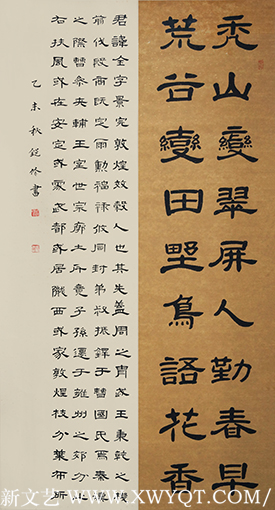 秃山變翠屏人勤春早
荒谷變田野鳥語花香
君諱全字景完敦煌效穀人也其先蓋周之胄武王秉乾之機
翦伐殷商既定爾勳福祿攸同封弟叔振鐸于曹國氏焉秦漢
之際曹參夾輔王室世宗廓土斥竟子孫遷于雍州之郊分止
右扶風或在安定或處武都或居隴西或家敦煌枝分葉布所
乙未秋書
新文艺/WWW.XWYQT.COM/